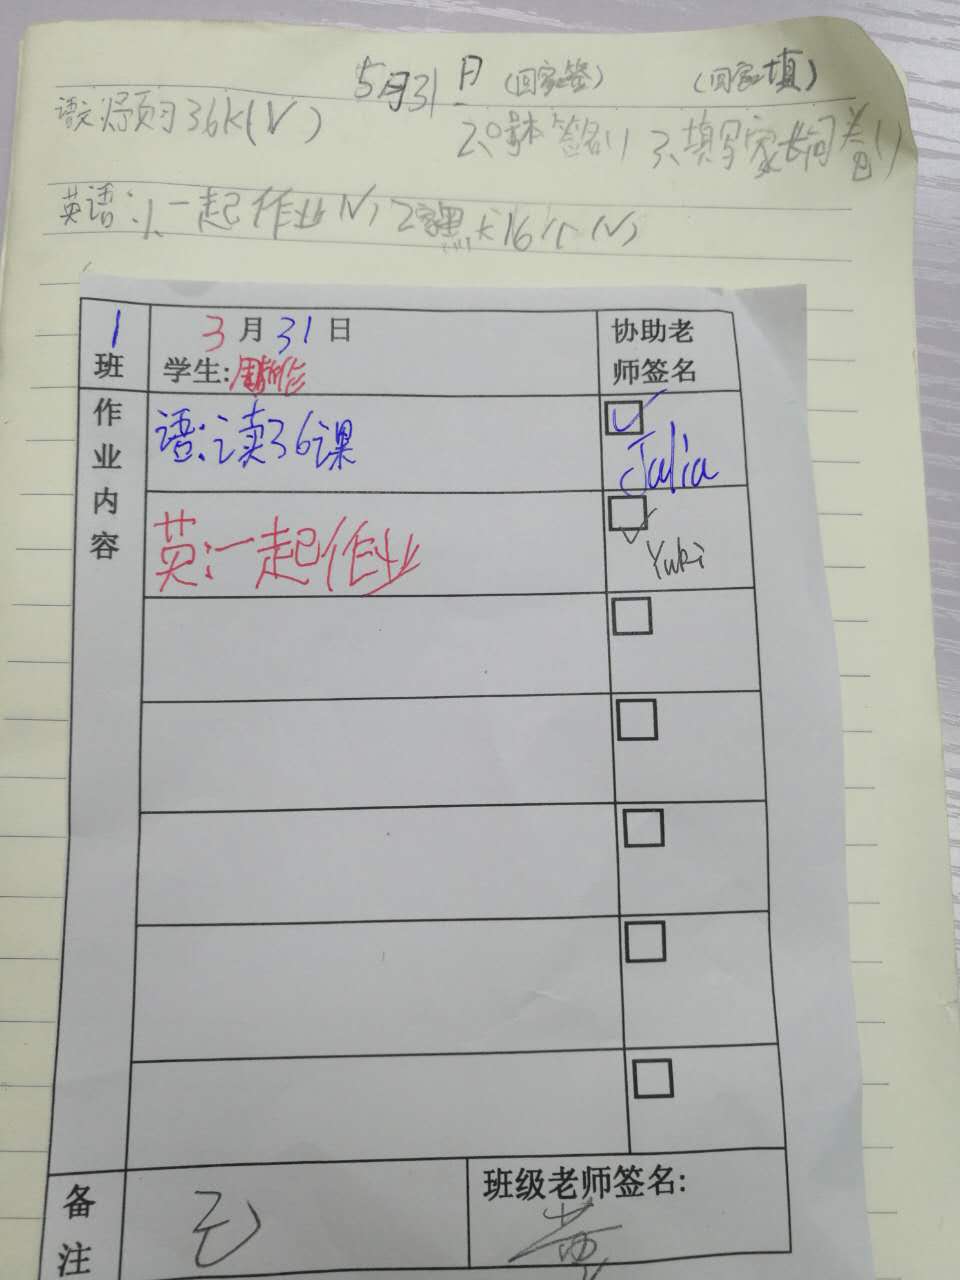 5月31日 (回家签) (回家填)
语文:1.预习36k(√) 2. 本签名() 3.填写家长问卷()
英语:1.一起作业(√) 2. 点16个(√)
1班 3月31日 协助老师签名
学生:
作业内容
语:读36课 Julia
英:一起作业 Yuki
备注 班级老师签名:
黄